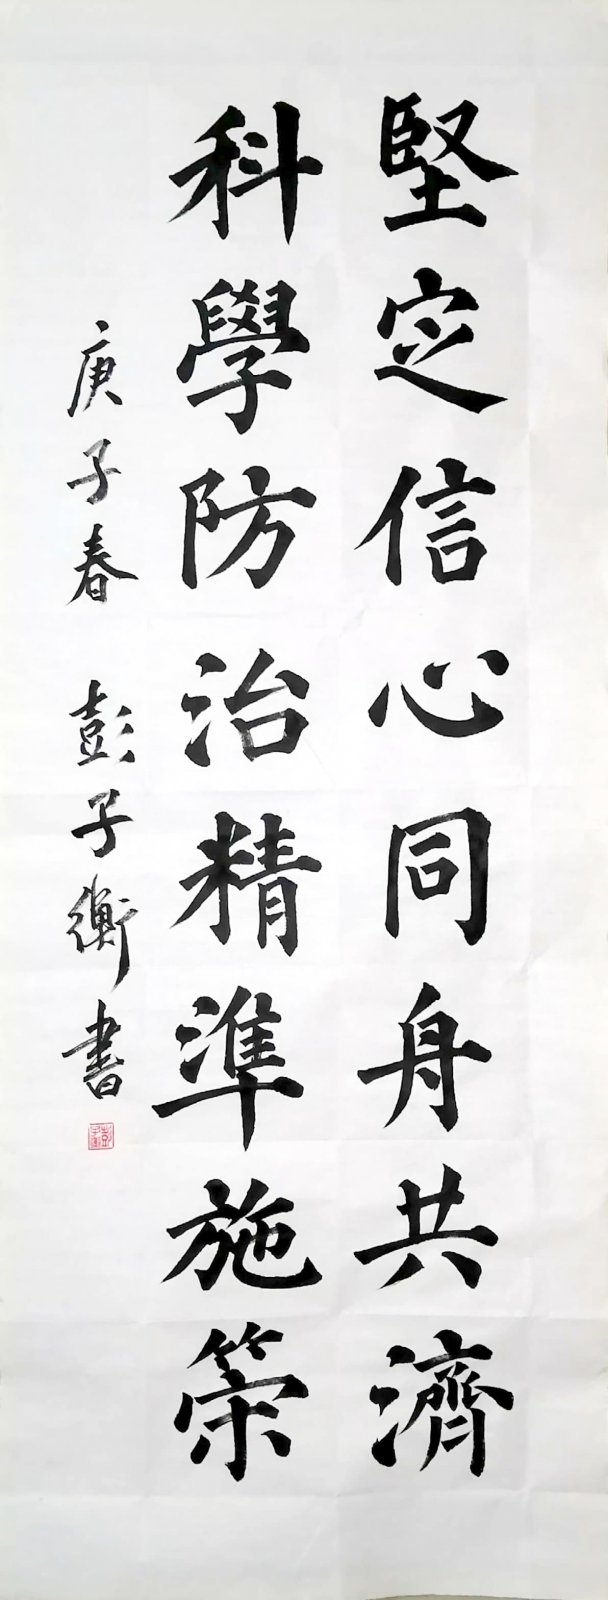 堅定信心同舟共濟
科學防治精準施策
庚子春 彭子衡書
彭子衡